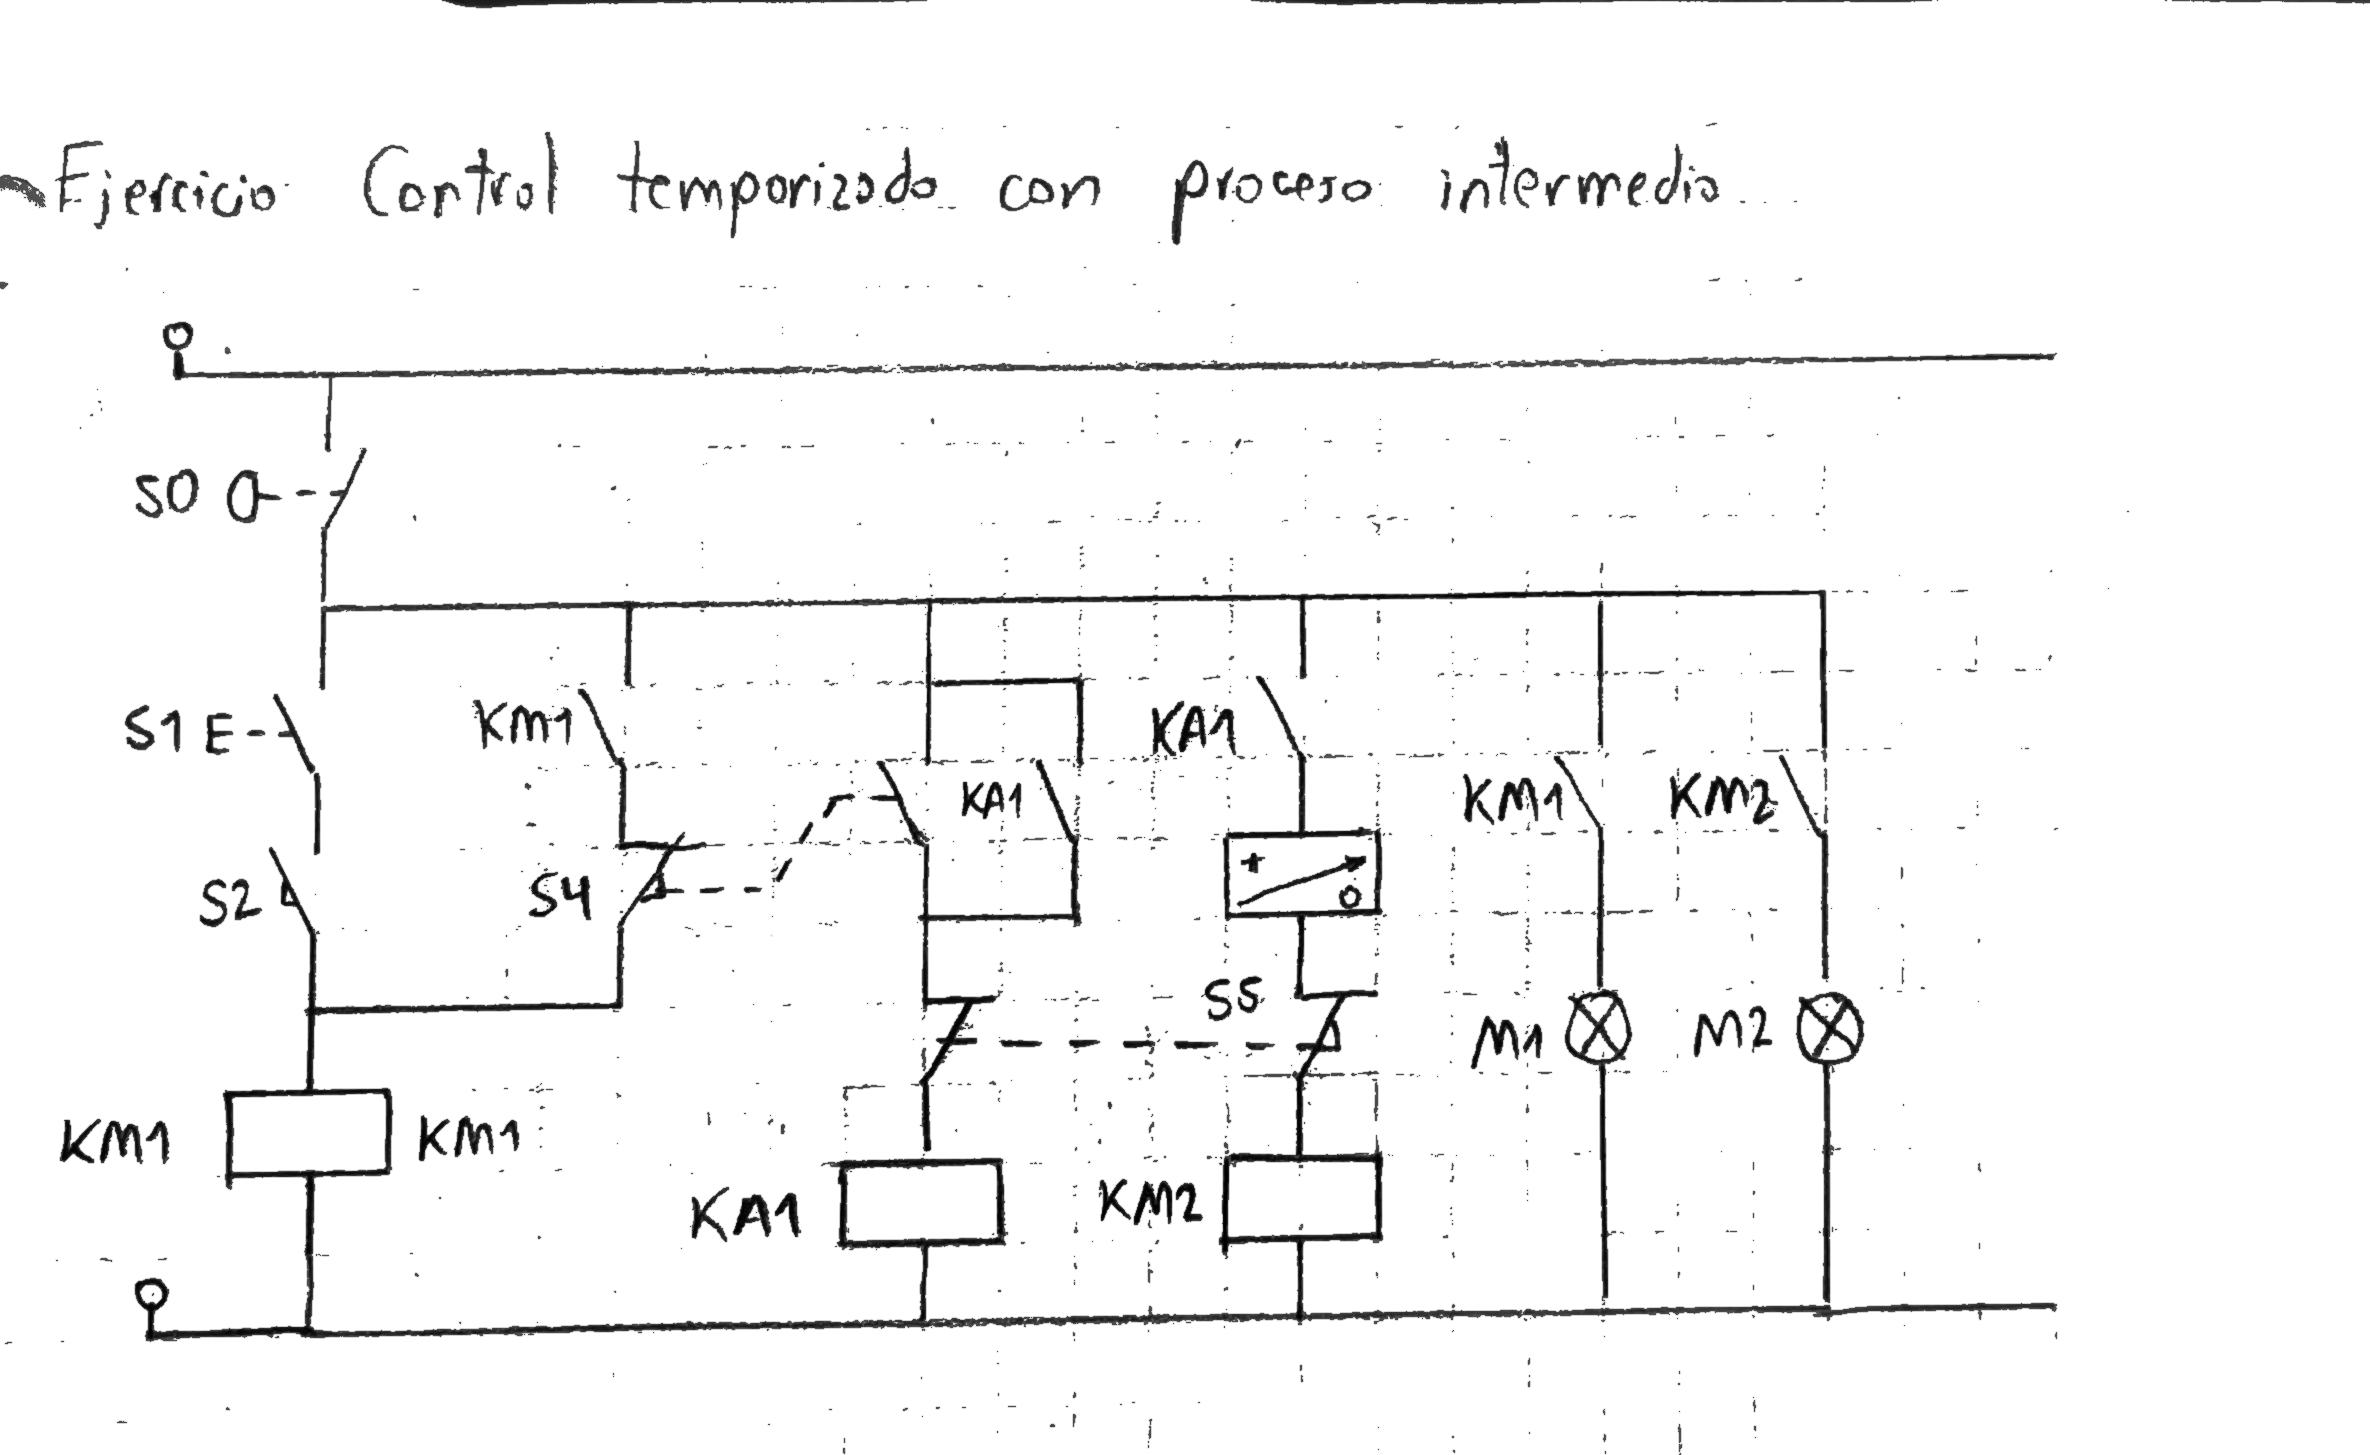 Ejercicio Control temporizado con proceso intermedio
S0
S1 E
KM1
KA1
KA1
KM1
KM2
S2
S4
+
0
S5
M1
M2
KM1
KM1
KA1
KM2